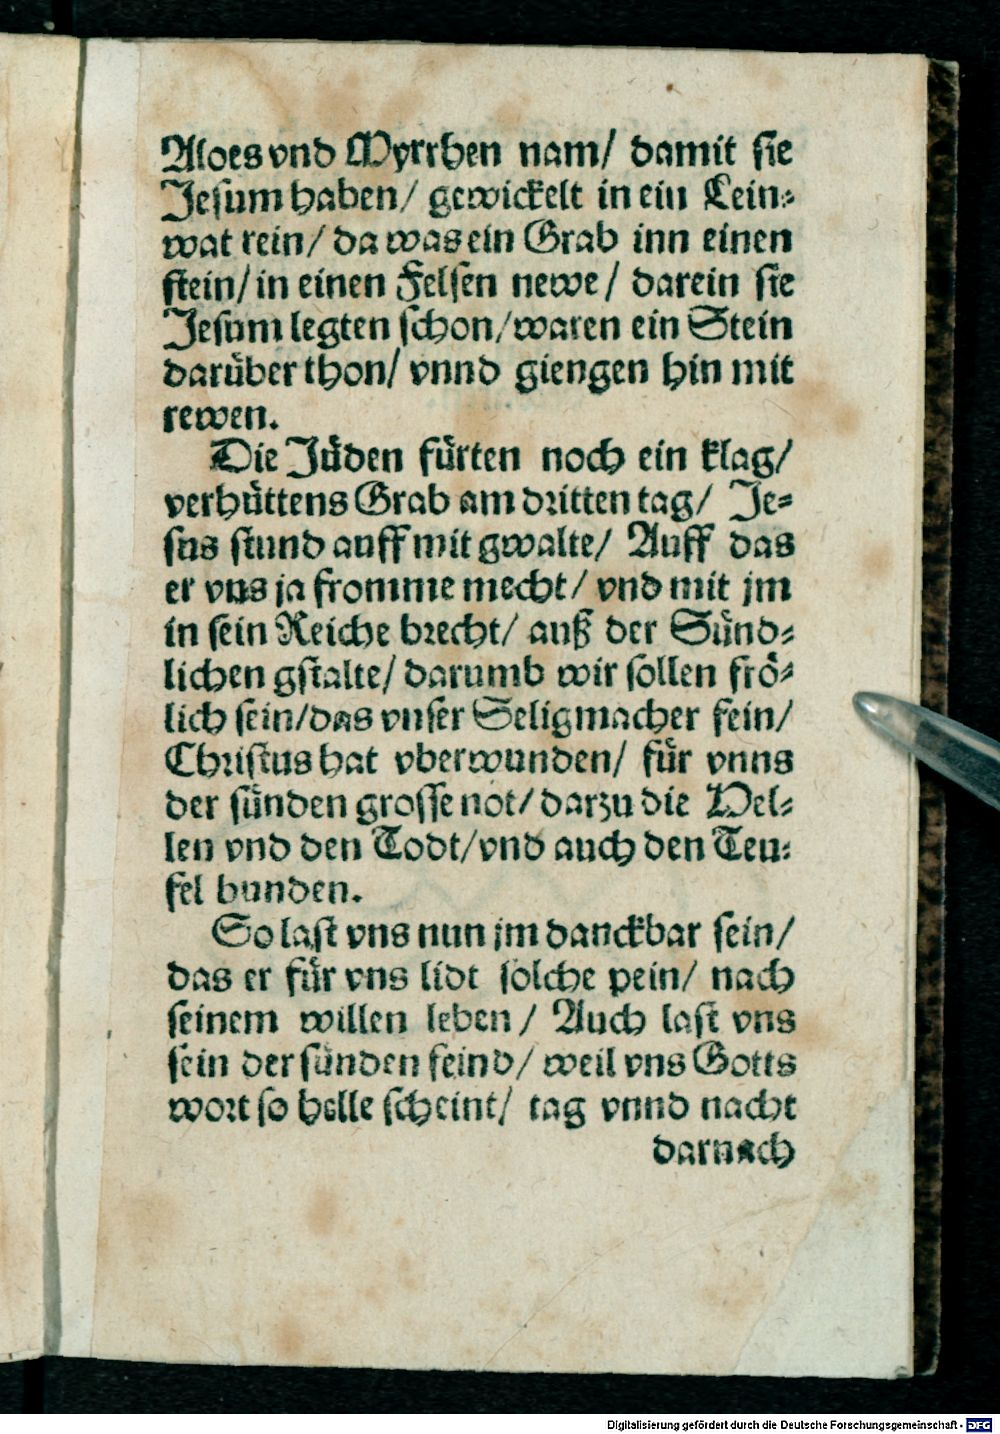 Aloes vnd Myrrhen nam/ damit sie
Jesum haben/ gewickelt in ein Lein-
wat rein/ da was ein Grab inn einen
stein/ in einen Felsen newe/ darein sie
Jesum legten schon/ waren ein Stein
darüber thon/ vnnd giengen hin mit
rewen.
Die Jüden fürten noch ein klag/
verhüttens Grab am dritten tag/ Je-
sus stund auff mit gwalte/ Auff das
er vns ja fromme mecht/ vnd mit jm
in sein Reiche brecht/ auß der Sünd-
lichen gstalte/ darumb wir sollen frö-
lich sein/ das vnser Seligmacher fein/
Christus hat vberwunden/ für vnns
der sünden grosse not/ darzu die Hel-
len vnd den Todt/ vnd auch den Teu-
fel bunden.
So last vns nun jm danckbar sein/
das er für vns lidt solche pein/ nach
seinem willen leben/ Auch last vns
sein der sünden feind/ weil vns Gotts
wort so helle scheint/ tag vnnd nacht
darnach
Digitalisierung gefördert durch die Deutsche Forschungsgemeinschaft - DFG